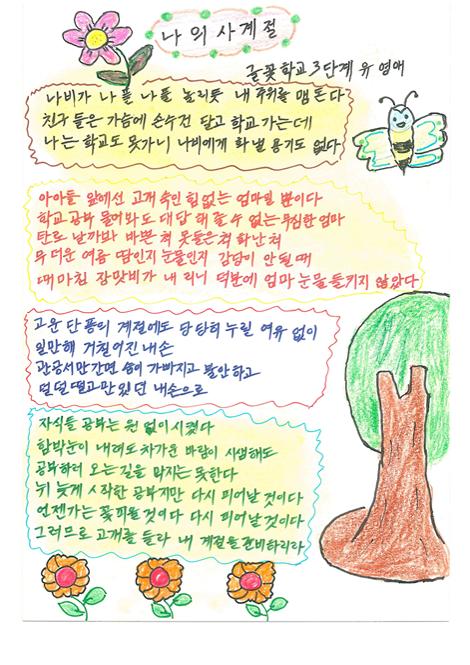 나의 사계절
글꽃학교 3단계 유영애
나비가 나플나플 놀리듯 내 주위를 맴돈다
친구들은 가슴에 손수건 달고 학교가는데
나는 학교도 못가니 나비에게 화낼 용기도 없다
아아들 앞에선 고개숙인 힘없는 엄마일 뿐이다
학교공부 물어봐도 대답 해줄 수 없는 무심한 엄마
탄로 날까봐 바쁜척 못들은척 화난척
무더운 여름 땀인지 눈물인지 감당이 안될때
때마침 장맛비가 내리니 덕분에 엄마 눈물 들키지 않았다
고운 단풍의 계절에도 당당히 누릴 여유 없이
일만해 거칠어진 내손
관공서만 가면 숨이 가빠지고 불안하고
덜덜 떨고만 있던 내손으로
자식들 공부는 원 없이 시켰다
함박눈이 내려도 차가운 바람이 시샘해도
공부하러 오는 길을 막지는 못한다
뒤늦게 시작한 공부지만 다시 피어날 것이다
언젠가는 꽃피울 것이다 다시 피어날 것이다
그러므로 고개를 들라 내 계절을 준비하리라